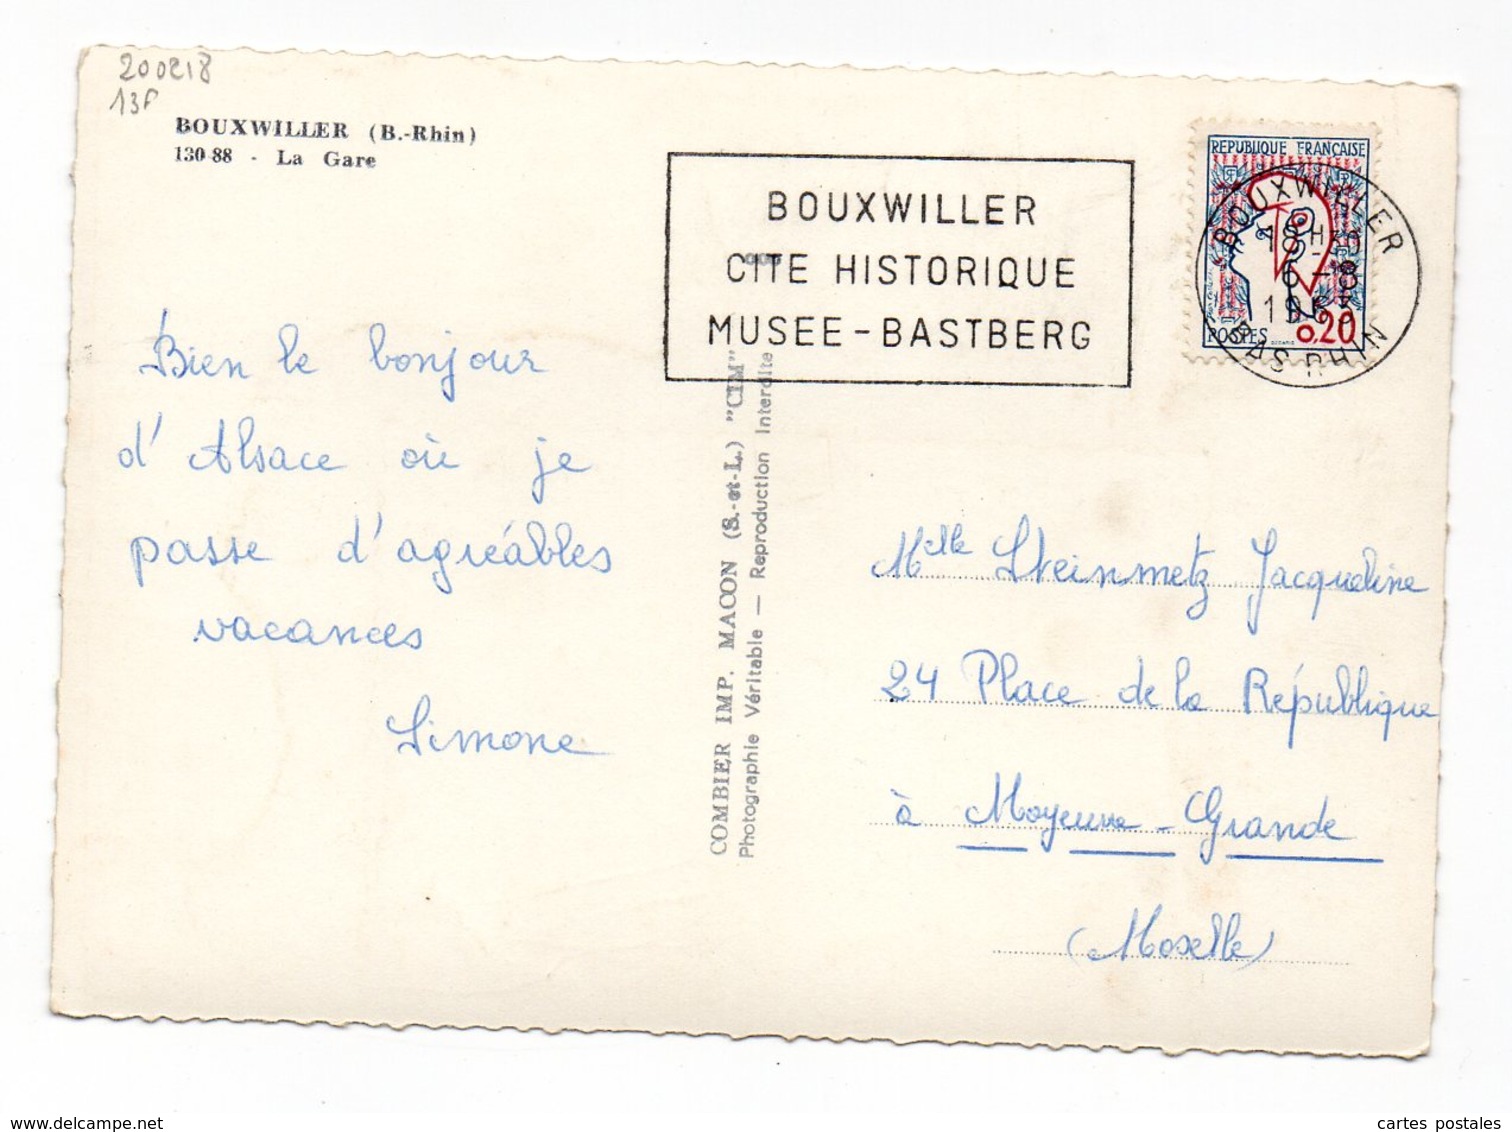 200218
13P
BOUXWILLER (B.-Rhin)
130-88 - La Gare
BOUXWILLER
CITE HISTORIQUE
MUSEE-BASTBERG
REPUBLIQUE FRANÇAISE
POSTES 0,20
BOUXWILLER
18H30
6-8
1963
BAS RHIN
Bien le bonjour
d'Alsace où je
passe d'agréables
vacances
Simone
COMBIER IMP. MACON (S.-et-L.) "CIM"
Photographie Véritable — Reproduction Interdite
Mlle Steinmetz Jacqueline
24 Place de la République
à Moyeuvre-Grande
(Moselle)
www.delcampe.net
cartes postales